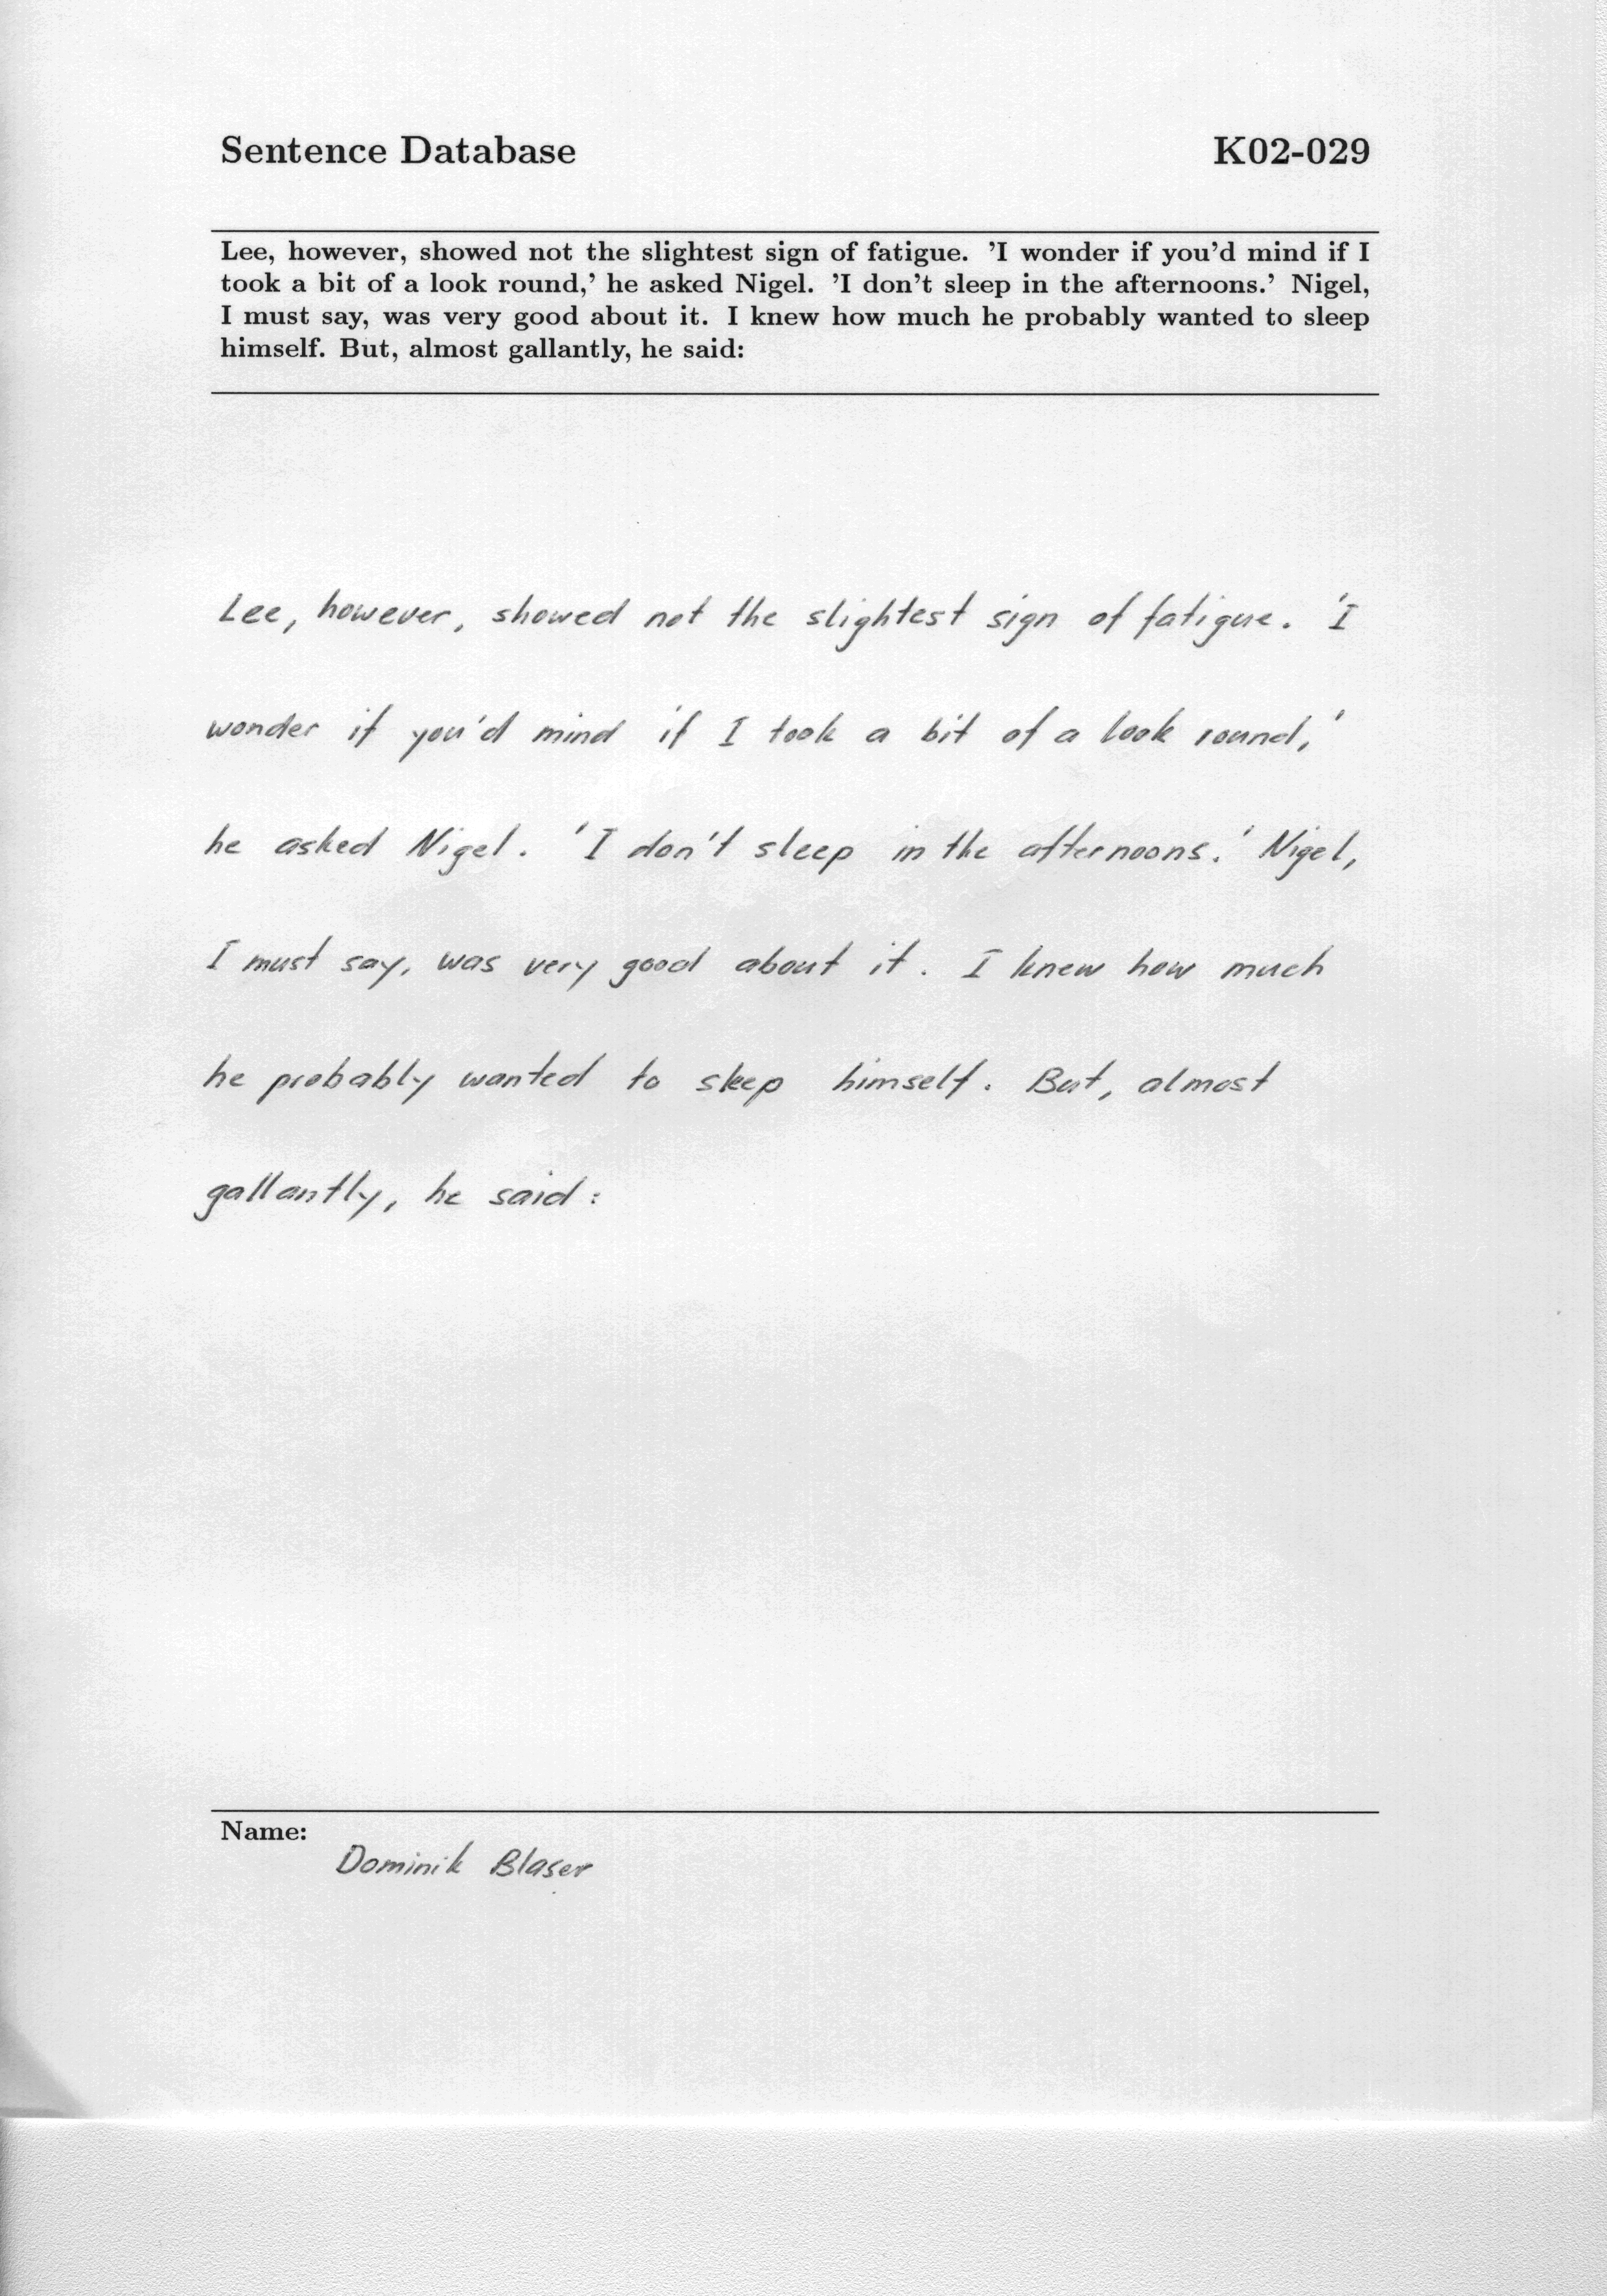 Sentence Database K02-029
Lee, however, showed not the slightest sign of fatigue. 'I wonder if you'd mind if I
took a bit of a look round,' he asked Nigel. 'I don't sleep in the afternoons.' Nigel,
I must say, was very good about it. I knew how much he probably wanted to sleep
himself. But, almost gallantly, he said:
Lee, however, showed not the slightest sign of fatigue. 'I
wonder if you'd mind if I took a bit of a look round,'
he asked Nigel. 'I don't sleep in the afternoons.' Nigel,
I must say, was very good about it. I knew how much
he probably wanted to sleep himself. But, almost
gallantly, he said:
Name:
Dominik Blaser